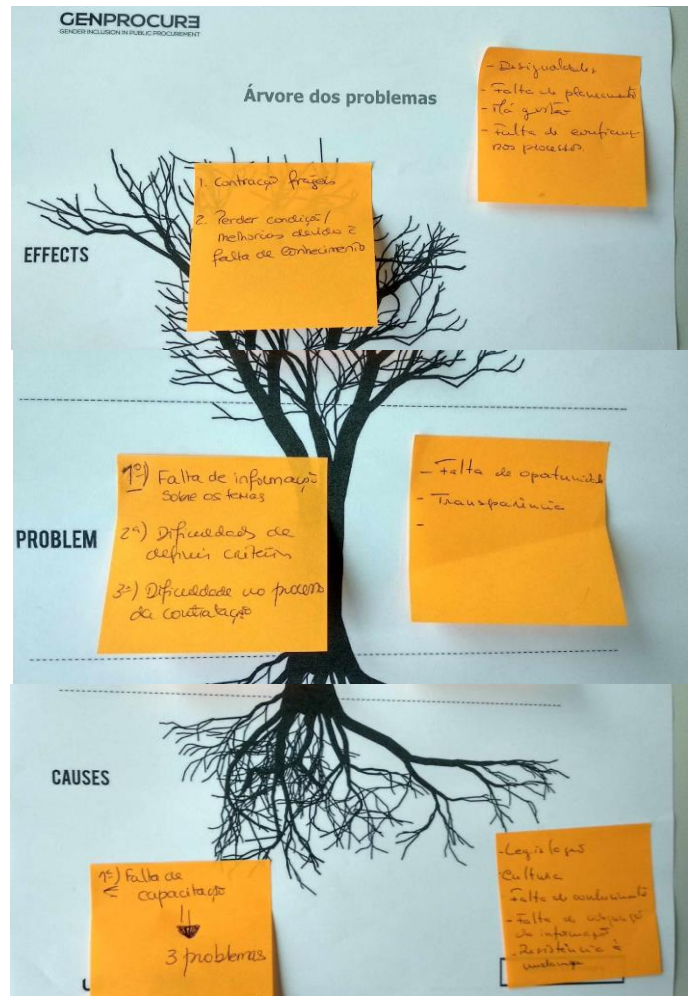 GENPROCURE
GENDER INCLUSION IN PUBLIC PROCUREMENT
Árvore dos problemas
- Desigualdades
- Falta de planeamento
- Má gestão
- Falta de confiança
nos processos.
1. Contração frágeis
2. Perder condição/
melhorias devido à
falta de conhecimento
EFFECTS
1º) Falta de informação
sobre os temas
2º) Dificuldade de
definir critérios
3º) Dificuldade no processo
da contratação
- Falta de oportunidade
- Transparência
-
PROBLEM
CAUSES
1º) Falta de
capacitação
3 problemas
- Legislação
- Cultura
Falta de conhecimento
- Falta de
da informação
- Resistência à
mudança